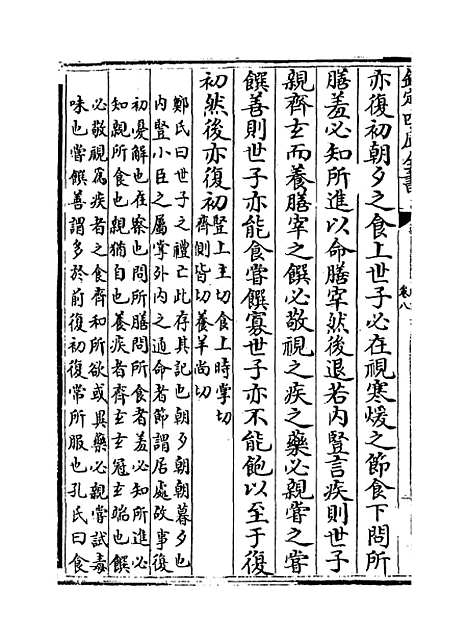 欽定四庫全書
卷八
亦復初朝夕之食上世子必在視寒煖之節食下問所
膳羞必知所進以命膳宰然後退若内豎言疾則世子
親齊玄而養膳宰之饌必敬視之疾之藥必親嘗之嘗
饌善則世子亦能食嘗饌寡世子亦不能飽以至于復
初然後亦復初
豎上主切食上時掌切
齊側皆切養羊尚切
鄭氏曰世子之禮亡此存其記也朝夕朝朝暮夕也
内豎小臣之屬掌外内之通命者節謂居處故事復
初憂解也在察也問所膳問所食者羞必知所進必
知親所食也親猶自也養疾者齊玄玄冠玄端也饌
必敬視為疾者之食齊和所欲或異藥必親嘗試毒
味也嘗饌善謂多於前復初復常所服也孔氏曰食